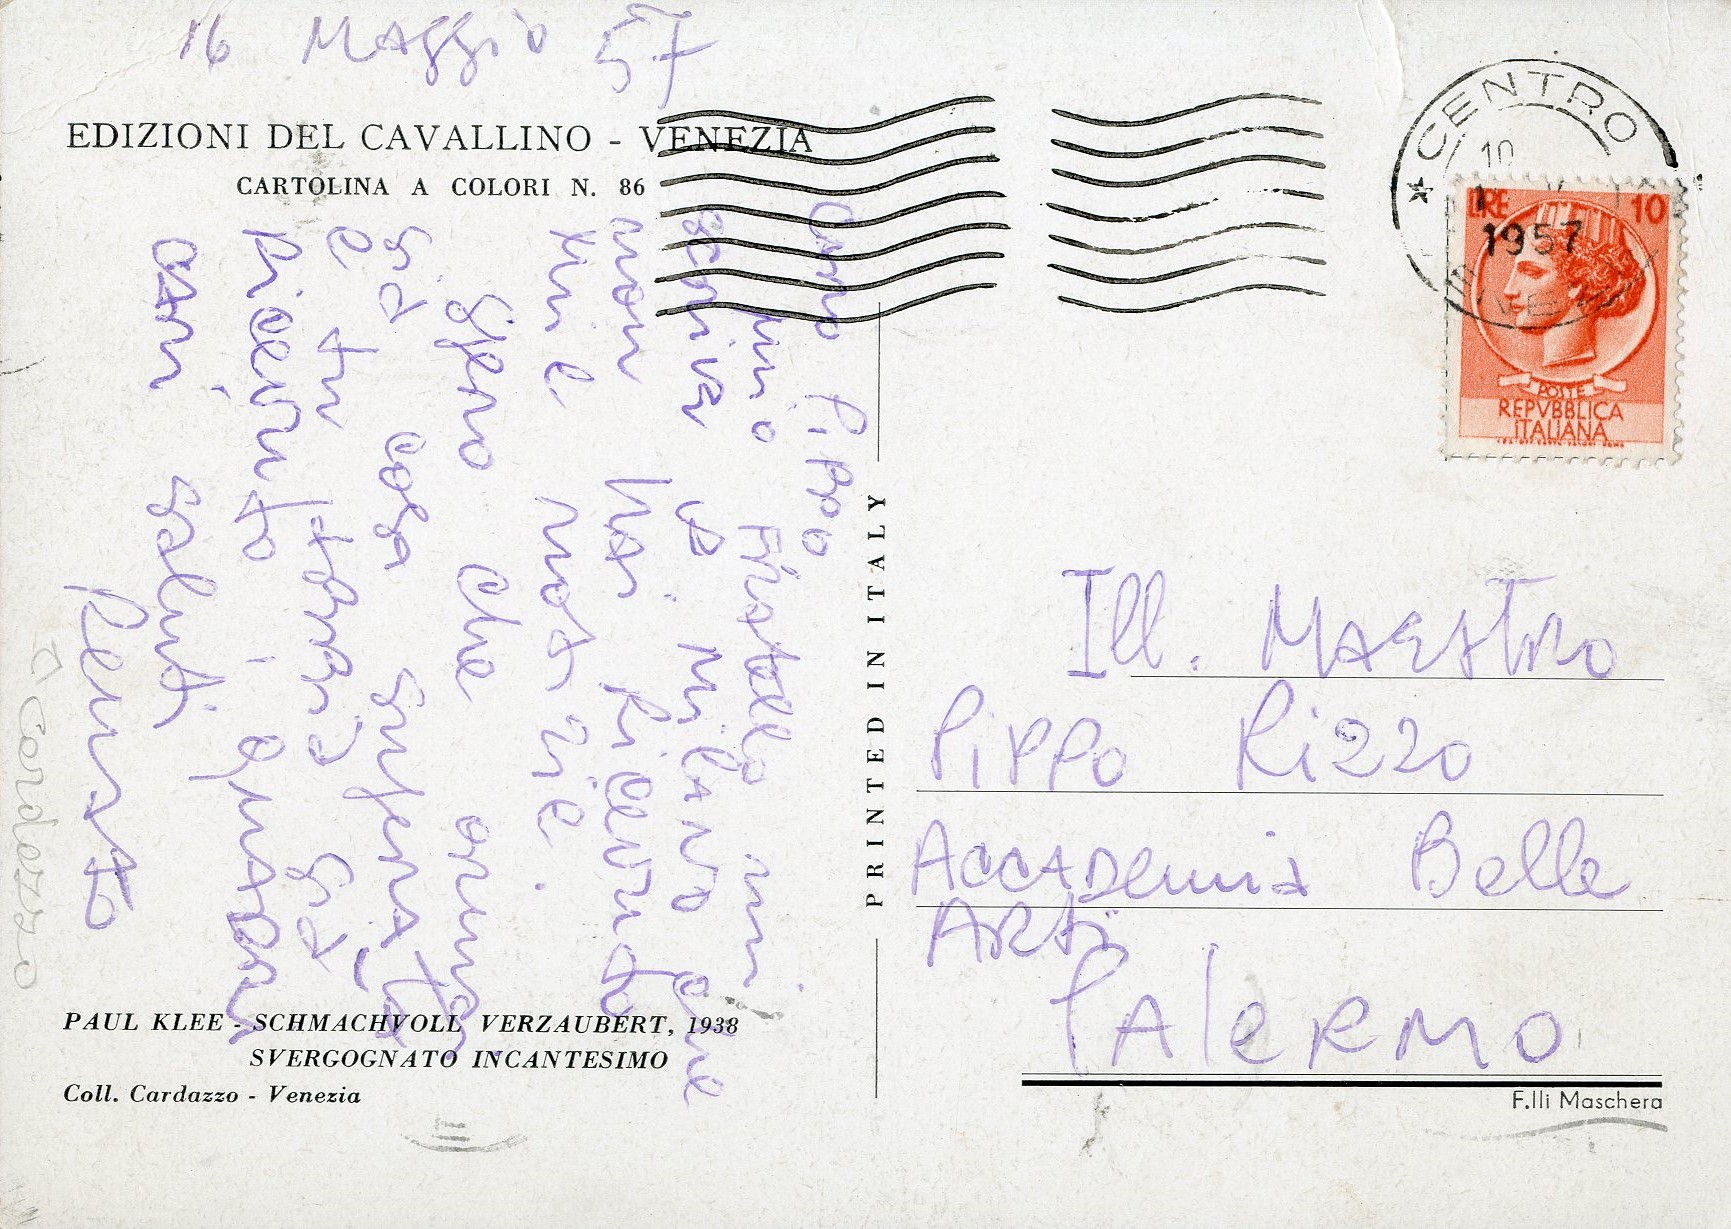 16 Maggio 57
EDIZIONI DEL CAVALLINO - VENEZIA
CARTOLINA A COLORI N. 86
Caro Pippo
mio Fratello mi
scrive da Milano che
non hai ricevuto
mie notizie.
Spero che ormai
sia cosa superata
e tu starai già
ricevuto i quadri
cari saluti
Renato
Cardazzo
PAUL KLEE - SCHMACHVOLL VERZAUBERT, 1938
SVERGOGNATO INCANTESIMO
Coll. Cardazzo - Venezia
PRINTED IN ITALY
CENTRO
10
1957
LIRE 10
POSTE
REPVBBLICA
ITALIANA
Ill. Maestro
Pippo Rizzo
Accademia Belle
Arti
Palermo
F.lli Maschera